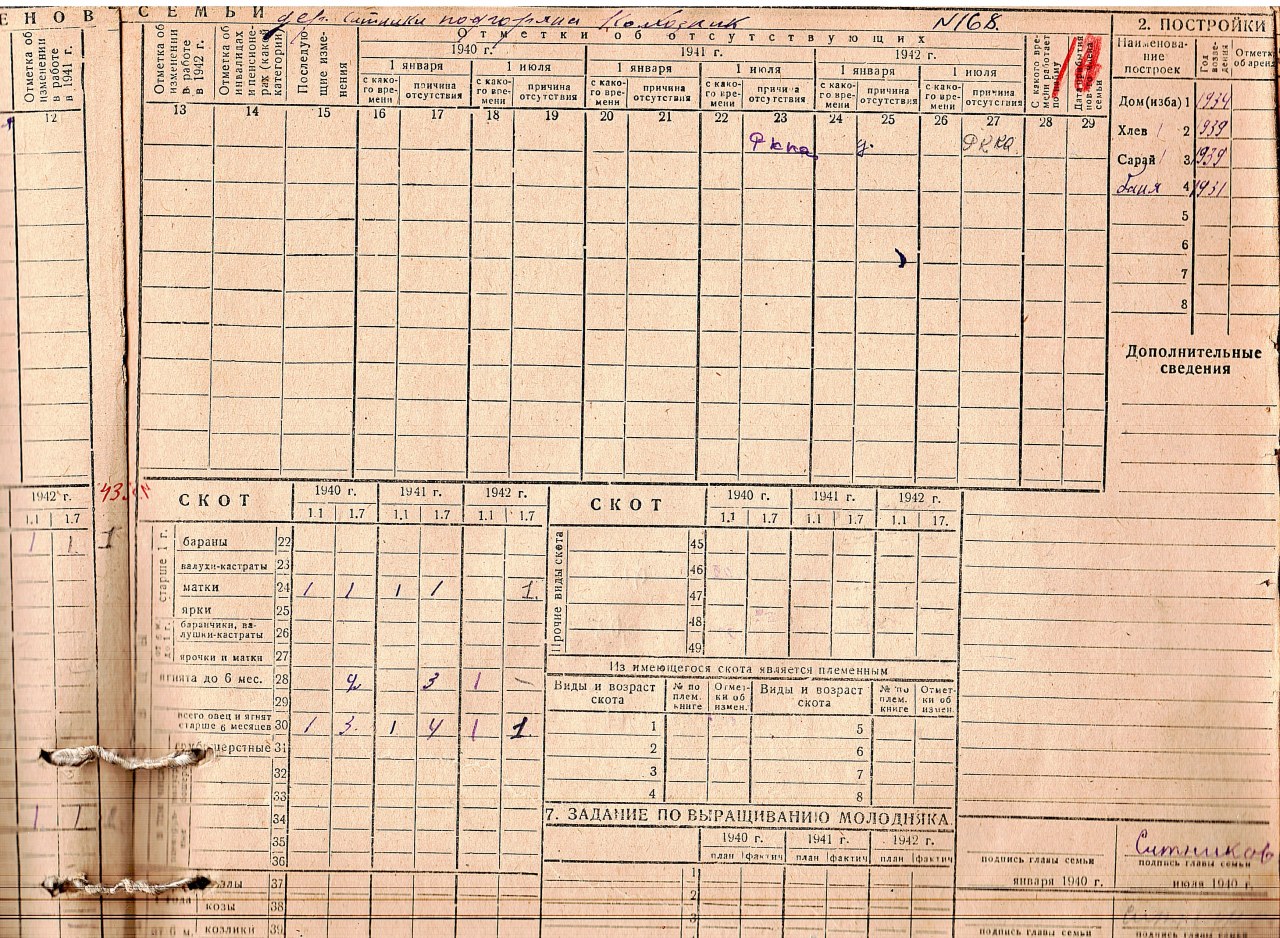 ЕНОВ СЕМЬИ дер. Ситники подгоряна Колхозник №168.
Отметка об изменении в работе в 1941 г.
Отметка об изменении в работе в 1942 г.
Отметка об инвалидах и пенсионерах (какой категории)
Последующие изменения
Отметки об отсутствующих
1940 г. 1941 г. 1942 г.
1 января 1 июля 1 января 1 июля 1 января 1 июля
с како-го вре-мени причина отсутствия с како-го вре-мени причина отсутствия с како-го вре-мени причина отсутствия с како-го вре-мени причина отсутствия с како-го вре-мени причина отсутствия с како-го вре-мени причина отсутствия
С какого вре-мени работает
12 13 14 15 16 17 18 19 20 21 22 23 24 25 26 27 28 29
Ркка РККа
2. ПОСТРОЙКИ
Наименова-ние построек Год возве-дения Отметк об аренд
Дом(изба) 1 1934
Хлев 2 939
Сарай 3 1939
баня 4 1931
5
6
7
8
Дополнительные сведения
1942 г. 43
1.1 1.7
1 1 1
1 1
СКОТ 1940 г. 1941 г. 1942 г.
1.1 1.7 1.1 1.7 1.1 1.7
старше 1 г.
бараны 22
валухи-кастраты 23
матки 24 1 1 1 1 1.
ярки 25
баранчики, ва-лушки-кастраты 26
ярочки и матки 27
ягнята до 6 мес. 28 2 3 1 —
29
всего овец и ягнят старше 6 месяцев 30 1 3. 1 4 1 1.
грубошерстные 31
32
33
34
35
36
козлы 37
козы 38
козлики 39
СКОТ 1940 г. 1941 г. 1942 г.
1.1 1.7 1.1 1.7 1.1 17.
Прочие виды скота
45
46
47
48
49
Из имеющегося скота является племенным
Виды и возраст скота № по плем. книге Отмет-ки об измен. Виды и возраст скота № по плем. книге Отмет-ки об измен.
1 5
2 6
3 7
4 8
7. ЗАДАНИЕ ПО ВЫРАЩИВАНИЮ МОЛОДНЯКА.
1940 г. 1941 г. 1942 г.
план фактич план фактич план фактич
1
2
3
Ситников
подпись главы семьи подпись главы семьи
января 1940 г. июля 1940 г.
подпись главы семьи подпись главы семьи